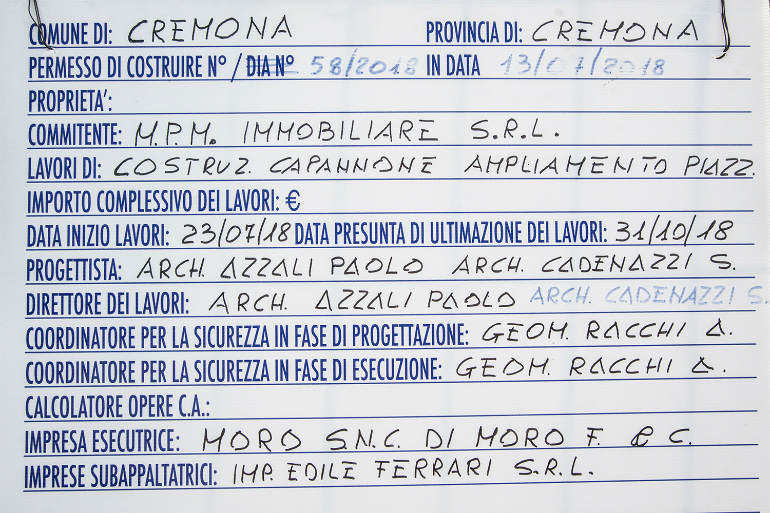 COMUNE DI: CREMONA PROVINCIA DI: CREMONA
PERMESSO DI COSTRUIRE N° / DIA N° 58/2018 IN DATA 13/07/2018
PROPRIETA':
COMMITENTE: M.P.M. IMMOBILIARE S.R.L.
LAVORI DI: COSTRUZ. CAPANNONE AMPLIAMENTO PIAZZ.
IMPORTO COMPLESSIVO DEI LAVORI: €
DATA INIZIO LAVORI: 23/07/18 DATA PRESUNTA DI ULTIMAZIONE DEI LAVORI: 31/10/18
PROGETTISTA: ARCH. AZZALI PAOLO ARCH. CADENAZZI S.
DIRETTORE DEI LAVORI: ARCH. AZZALI PAOLO ARCH. CADENAZZI S.
COORDINATORE PER LA SICUREZZA IN FASE DI PROGETTAZIONE: GEOM. RACCHI A.
COORDINATORE PER LA SICUREZZA IN FASE DI ESECUZIONE: GEOM. RACCHI A.
CALCOLATORE OPERE C.A.:
IMPRESA ESECUTRICE: MORO S.N.C. DI MORO F. e C.
IMPRESE SUBAPPALTATRICI: IMP. EDILE FERRARI S.R.L.